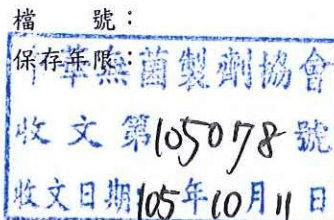 檔號：
保存年限：
中華無菌製劑協會
收文第105078號
收文日期105年10月11日